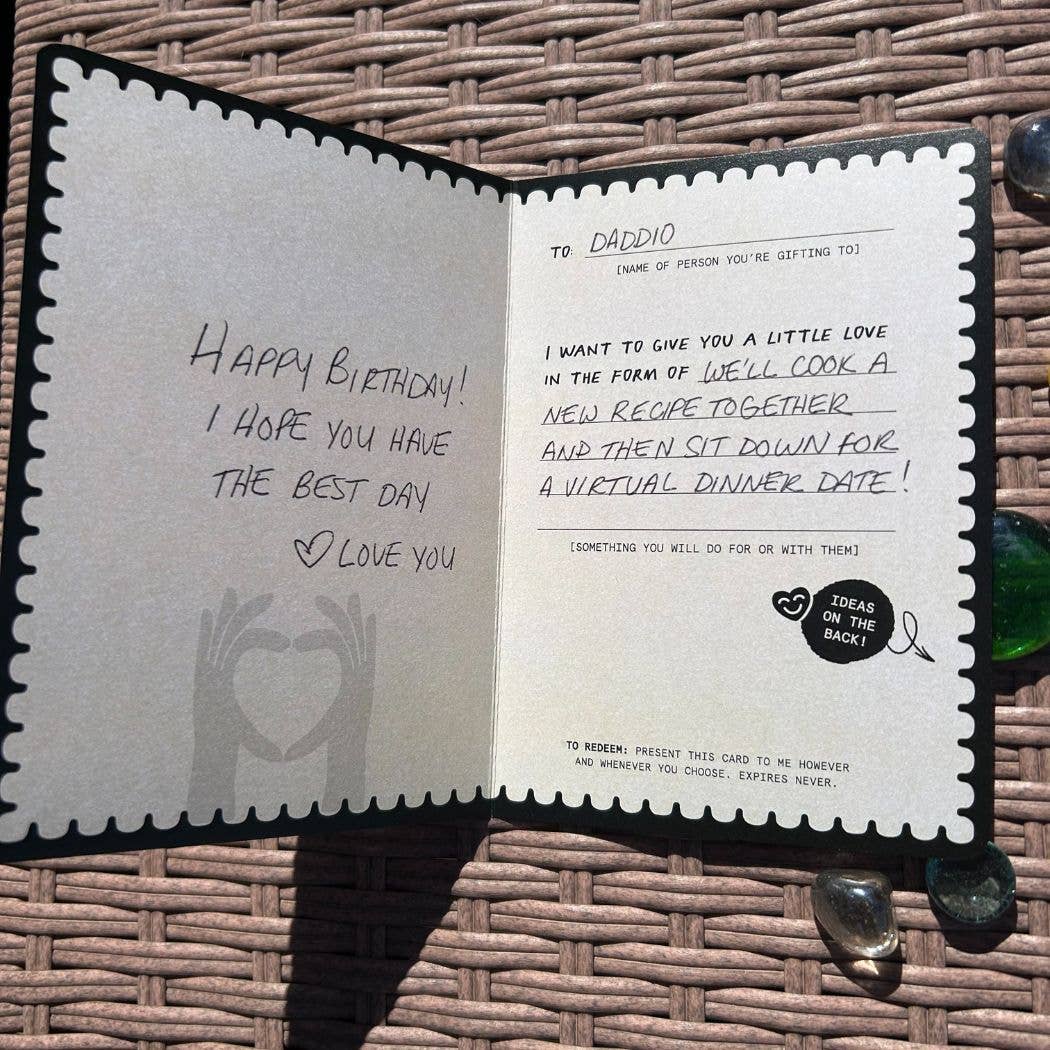 HAPPY BIRTHDAY!
I HOPE YOU HAVE
THE BEST DAY
♡ LOVE YOU
TO: DADDIO
[NAME OF PERSON YOU'RE GIFTING TO]
I WANT TO GIVE YOU A LITTLE LOVE
IN THE FORM OF WE'LL COOK A
NEW RECIPE TOGETHER
AND THEN SIT DOWN FOR
A VIRTUAL DINNER DATE!
[SOMETHING YOU WILL DO FOR OR WITH THEM]
IDEAS
ON THE
BACK!
TO REDEEM: PRESENT THIS CARD TO ME HOWEVER
AND WHENEVER YOU CHOOSE. EXPIRES NEVER.